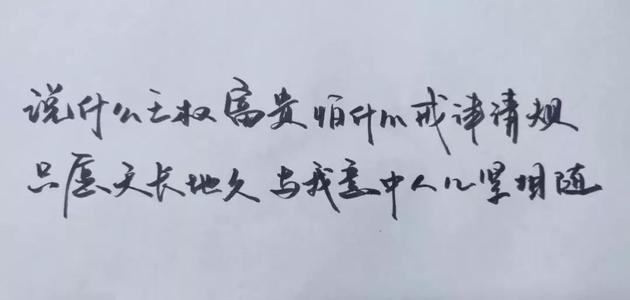 说什么王权富贵怕什么戒律清规
只愿天长地久与我意中人儿紧相随